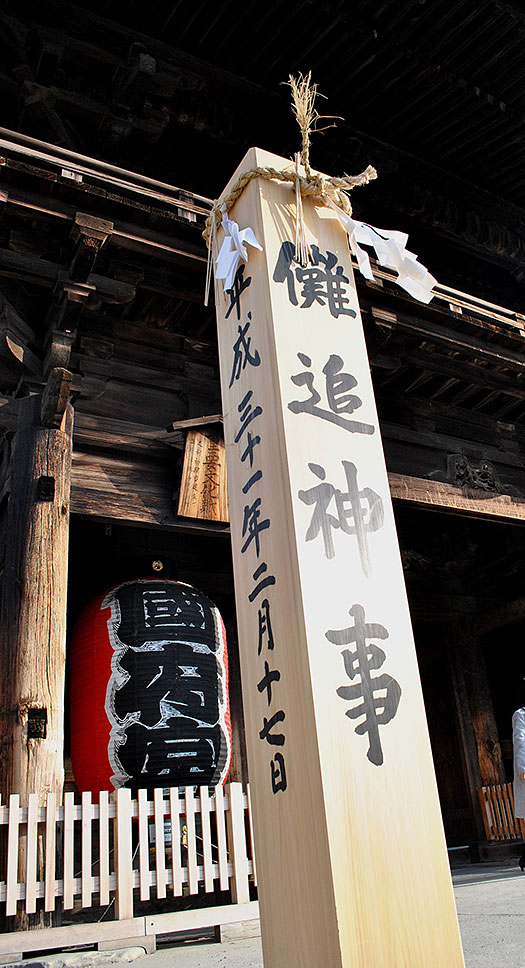 儺追神事
平成三十一年二月十七日
国府宮